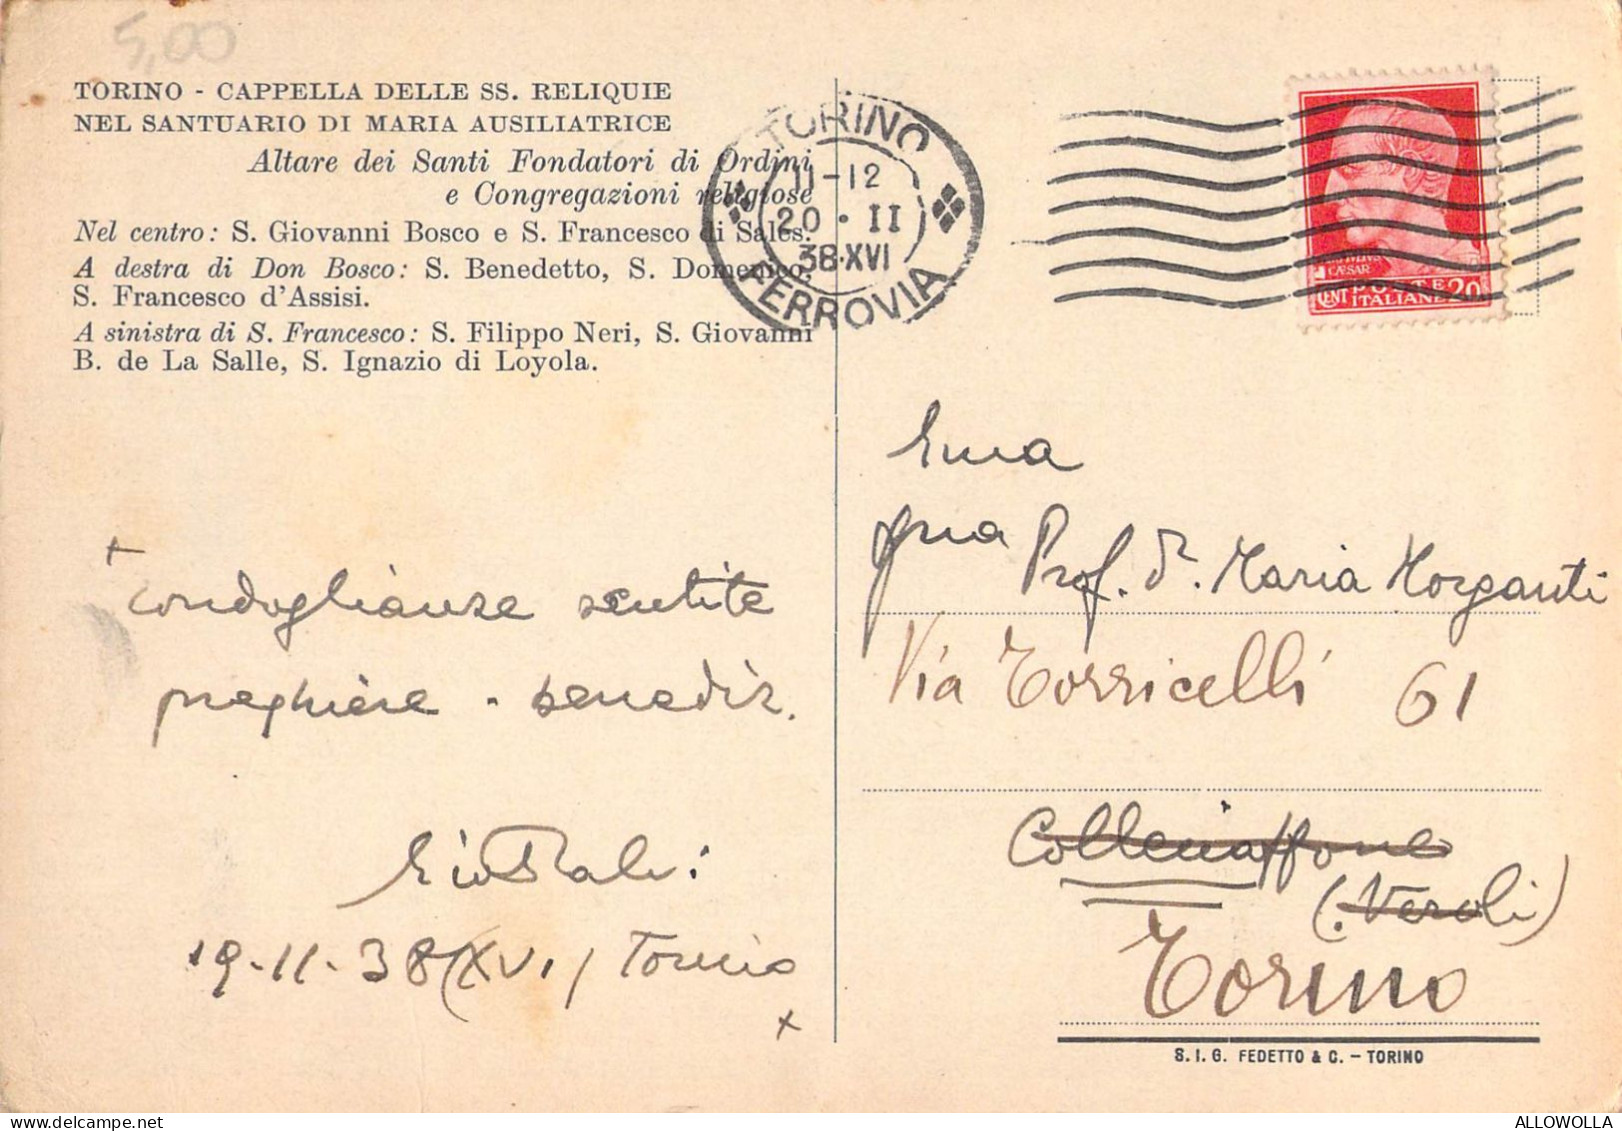 5,00
TORINO - CAPPELLA DELLE SS. RELIQUIE
NEL SANTUARIO DI MARIA AUSILIATRICE
Altare dei Santi Fondatori di Ordini
e Congregazioni religiose
Nel centro: S. Giovanni Bosco e S. Francesco di Sales.
A destra di Don Bosco: S. Benedetto, S. Domenico,
S. Francesco d'Assisi.
A sinistra di S. Francesco: S. Filippo Neri, S. Giovanni
B. de La Salle, S. Ignazio di Loyola.
TORINO
11-12
20·II
38·XVI
FERROVIA
CAESAR
CENT POSTE 20
ITALIANE
condoglianze sentite
preghiere - benediz.
19-II-38 (XVI) Torino
gna
Prof. D. Maria Morganti
Via Torricelli 61
(Veroli)
Torino
S. I. G. FEDETTO & C. - TORINO
ALLOWOLLA